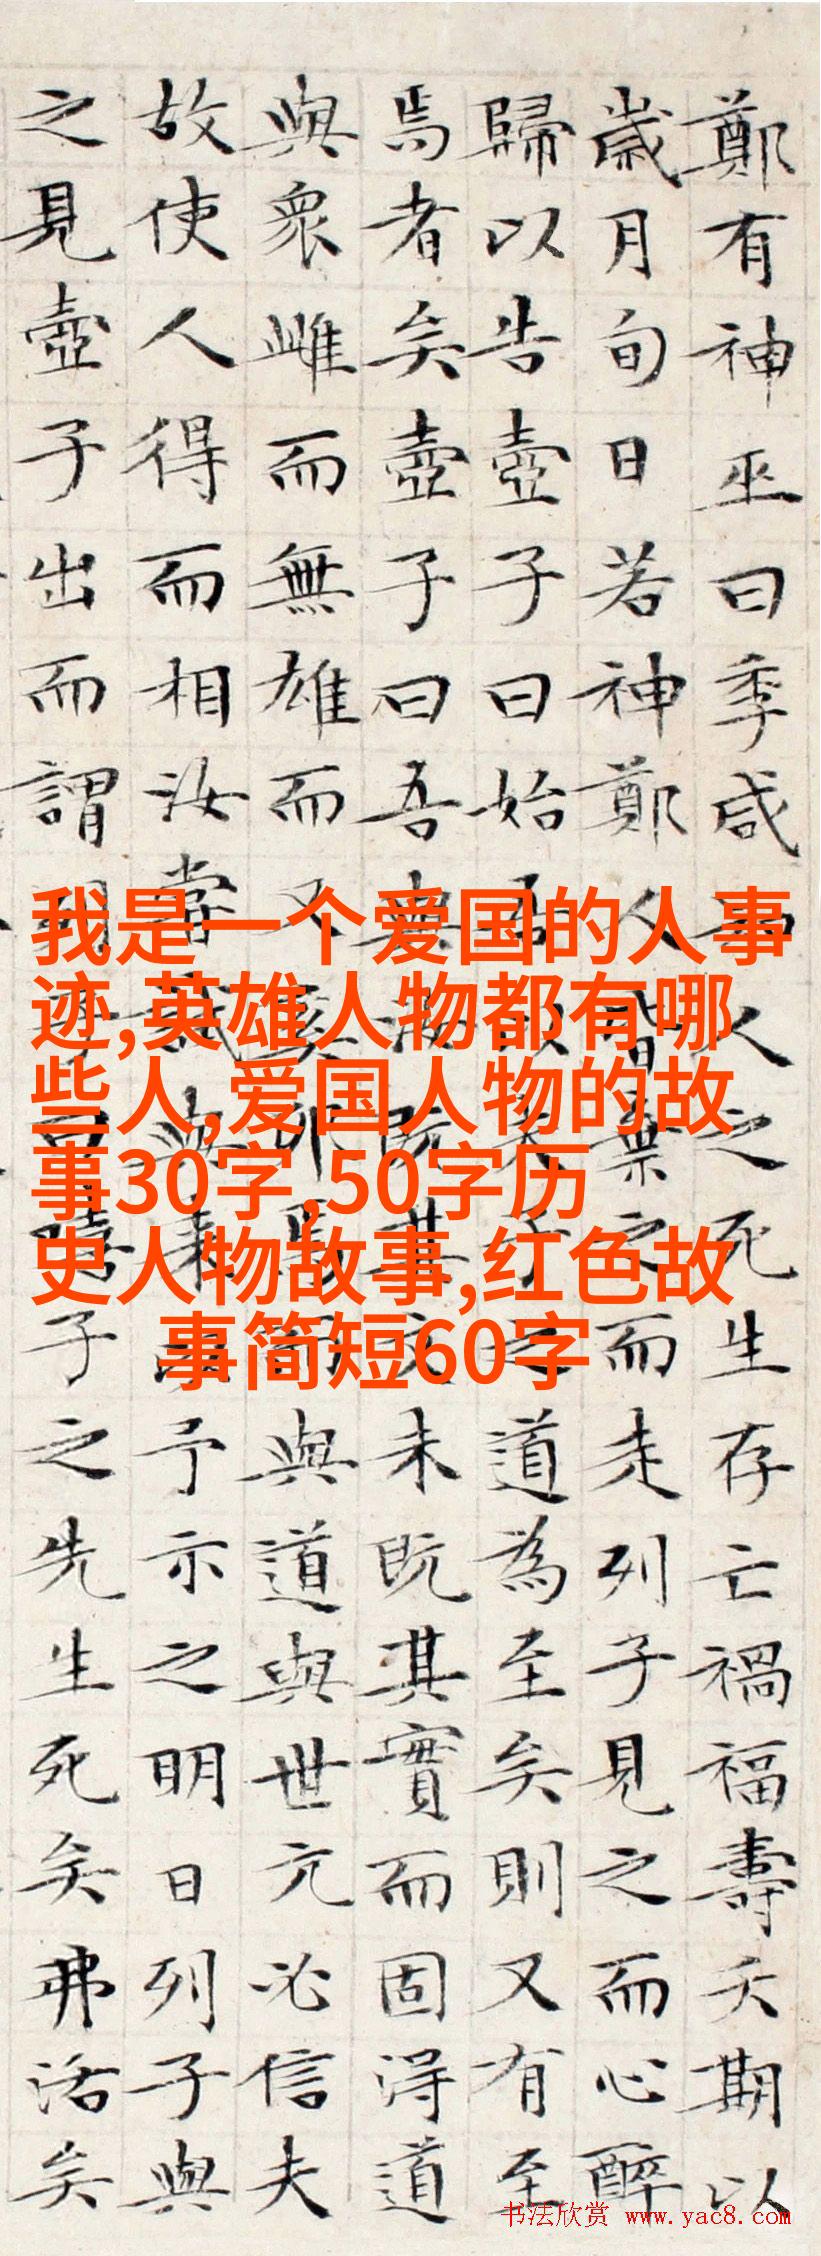 鄭有神巫曰季咸人之死生存亡禍福壽夭期以
歲月旬日若神鄭人皆棄之而走列子見之而心醉
歸以告壺子曰始吾道為至矣則又有至
焉者矣壺子曰吾與未既其實而固得道
與衆雌而無雄而又與道與世亢必信夫
故使人得而相汝嘗予示之明日列子與
之見壺子出而謂子之先生死矣弗活矣
我是一个爱国的人事
迹,英雄人物都有哪
些人,爱国人物的故
事30字,50字历
史人物故事,红色故
事简短60字
书法欣赏 www.yac8.com